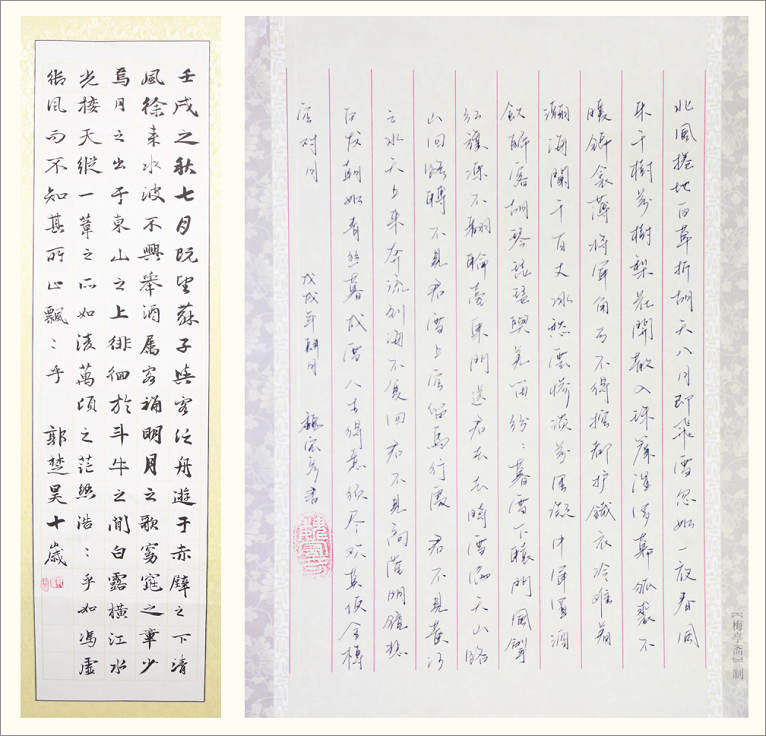 壬戌之秋七月既望蘇子與客泛舟遊于赤壁之下清
風徐来水波不興舉酒屬客誦明月之歌窈窕之章少
焉月之出于東山之上徘徊於斗牛之間白露橫江水
光接天縱一葦之所如淩萬頃之茫然浩:乎如馮虛
御風而不知其所止飄:乎 郭楚昊十歲
北風捲地百草折胡天八月即飛雪忽如一夜春風
来千樹萬樹梨花開散入珠簾濕羅幕狐裘不
暖錦衾薄將軍角弓不得控都护鐵衣冷難着
瀚海闌干百丈冰愁雲慘淡萬里凝中軍置酒
飲歸客胡琴琵琶與羌笛紛:暮雪下轅門風掣
紅旗凍不翻輪臺東門送君去去時雪滿天山路
山回路轉不見君雪上空留馬行處 君不見黄河
之水天上来奔流到海不复回君不見高堂明鏡悲
白发朝如青丝暮成雪人生得意须尽欢莫使金樽
空对月 戊戌年 魏宏书
【梅亭斋】制